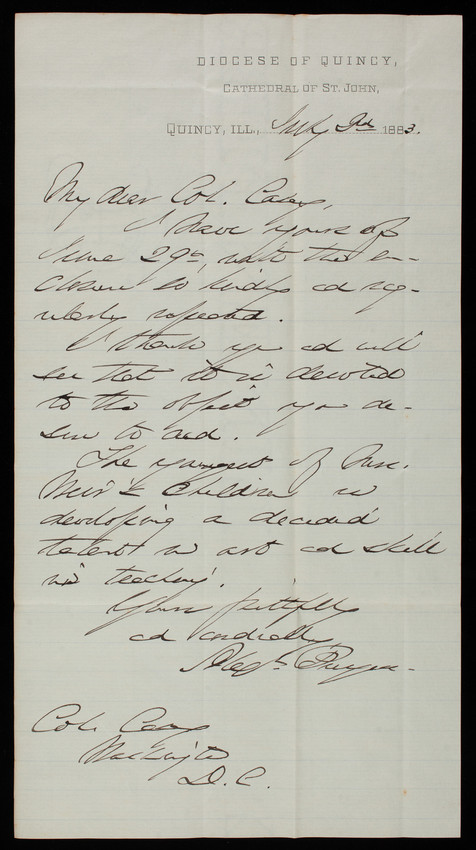 DIOCESE OF QUINCY,
CATHEDRAL OF ST. JOHN,
QUINCY, ILL., July 3d 1883.
My dear Col. Casey,
I have yours of
June 29th, with the en-
closure so kindly ad reg-
ularly repeated.
I thank you ad will
see that it is devoted
to the object you de-
sire to aid.
The youngest of
children is
developing a decided
talent in art ad skill
in teaching.
Yours faithfully
ad cordially,
Alexr. Burgess.
Col. Casey
Washington
D.C.